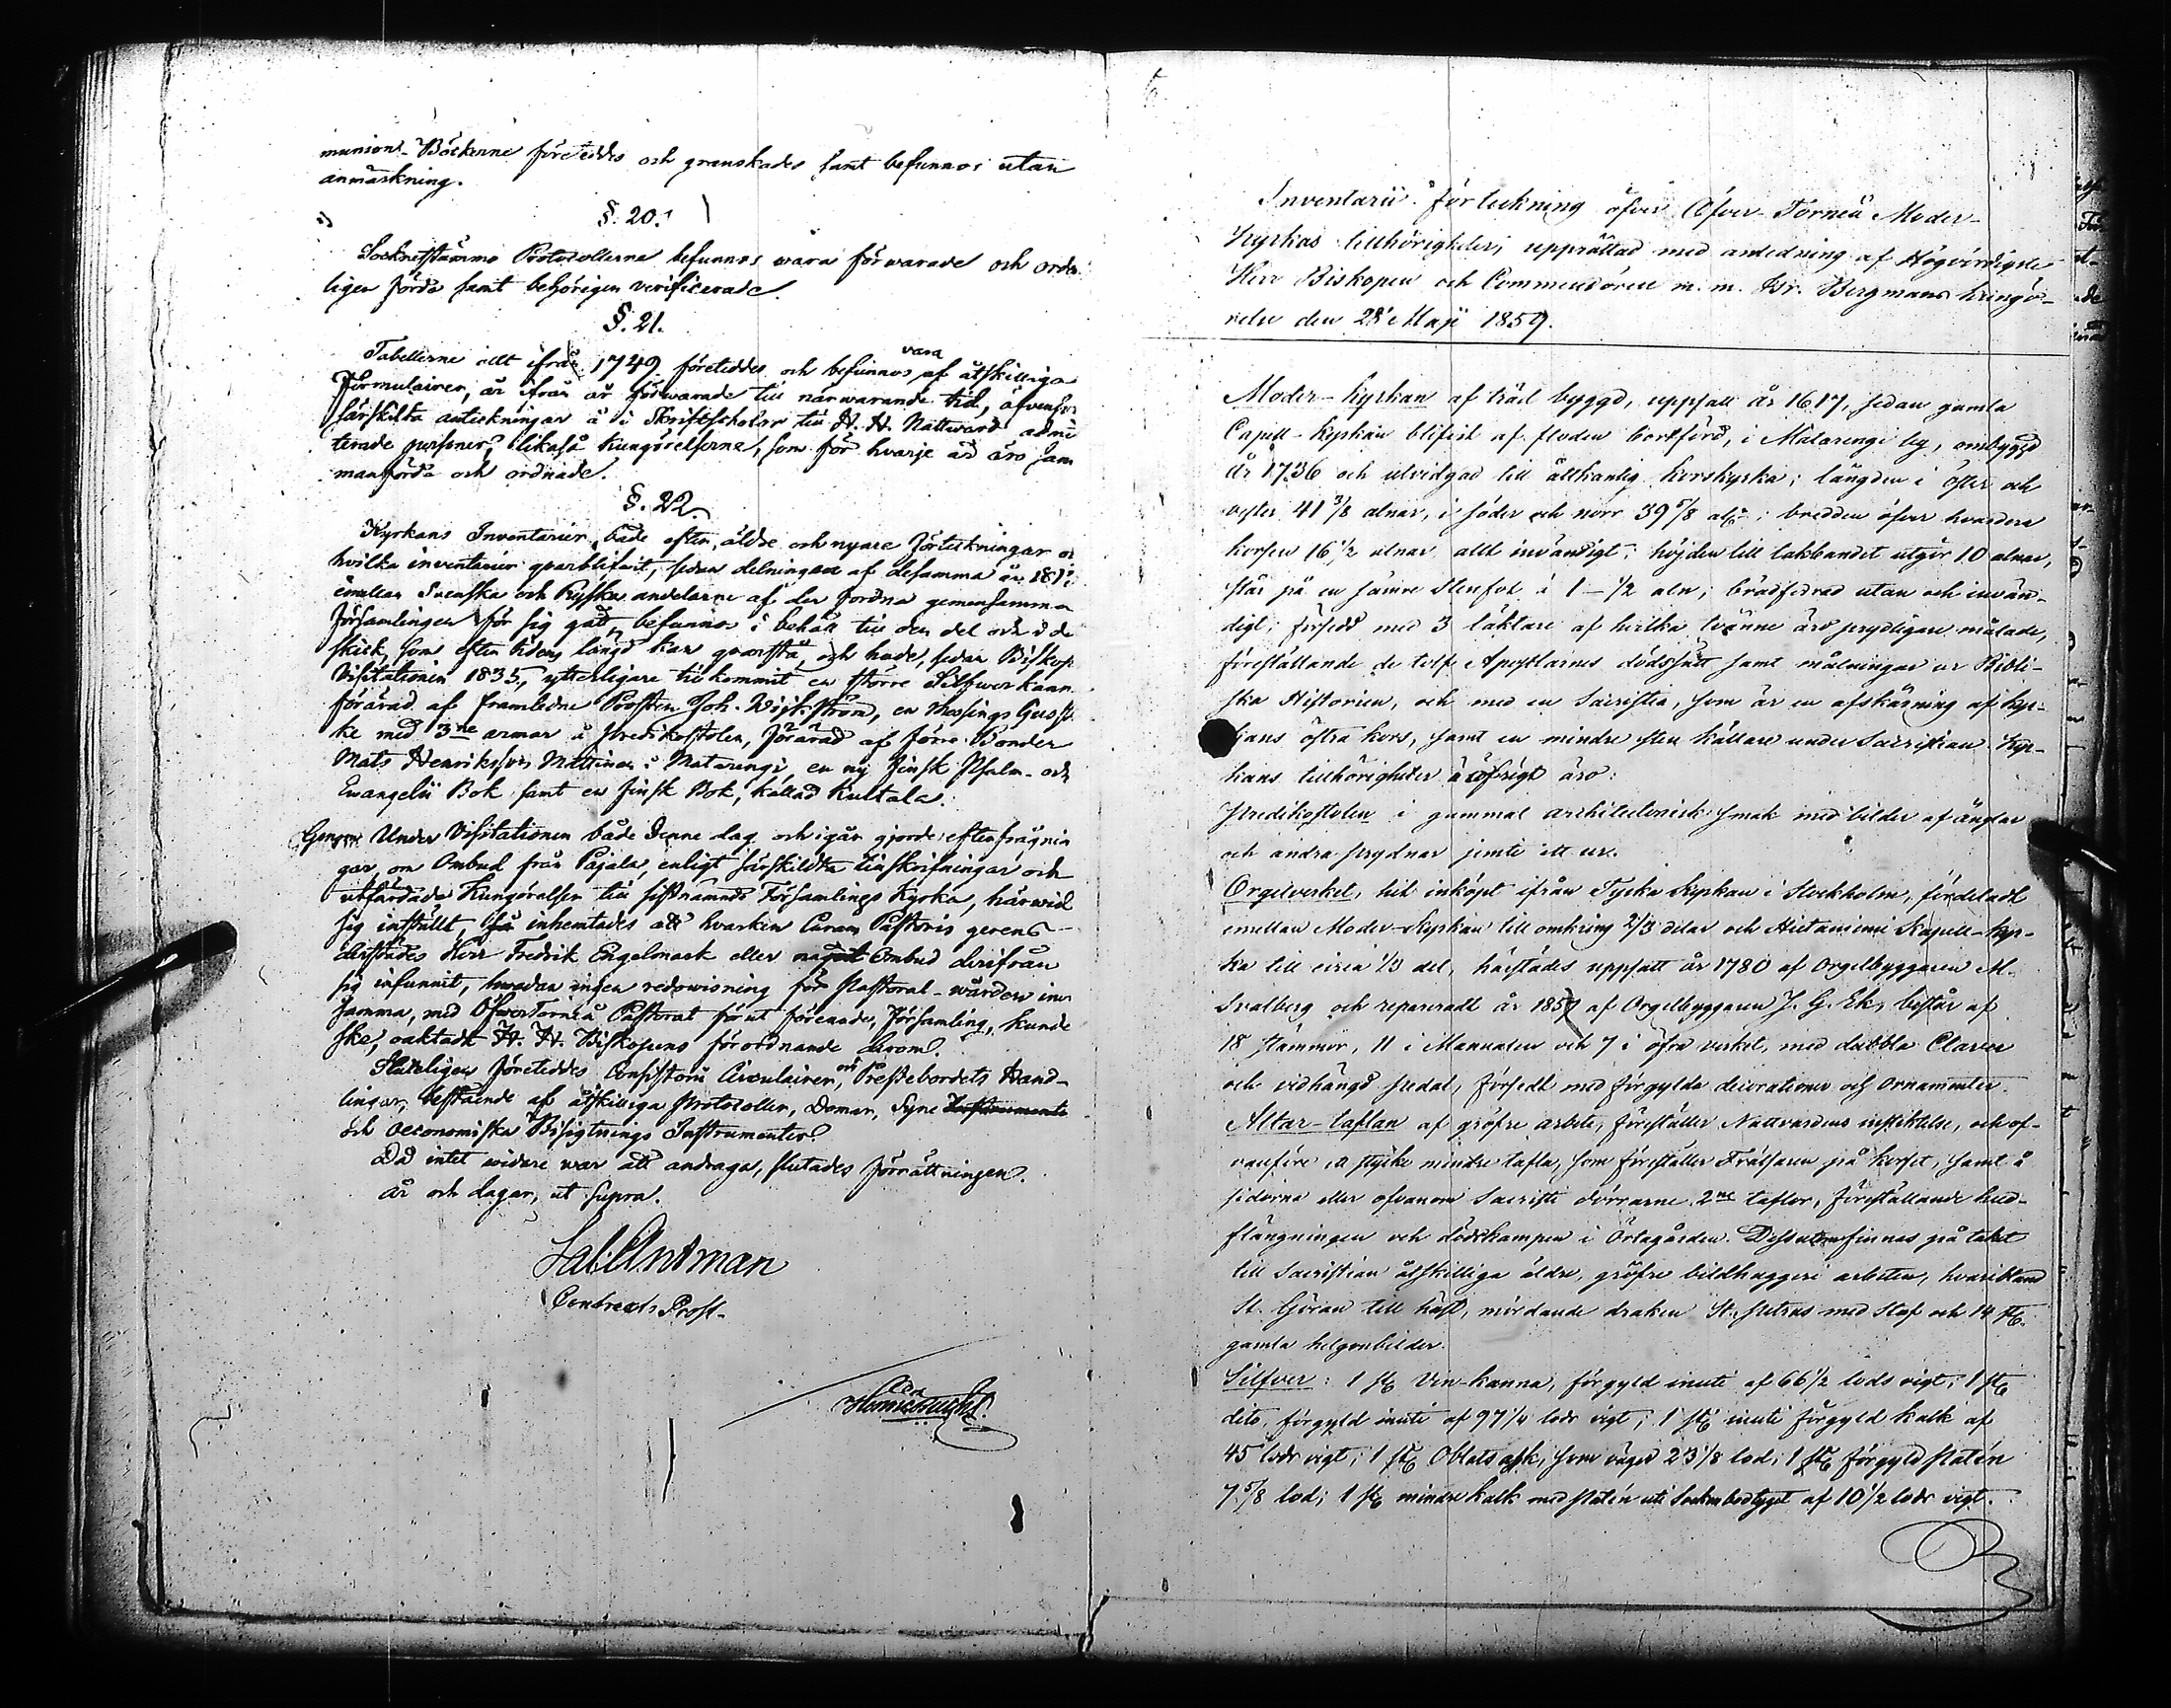 munions-Böckerne företeddes och granskades samt befunnos utan
anmärkning.
§. 20.
Socknestämmo Protocollerna befunnos wara förwarade och orden
ligen förda samt behörigen verificerade.
§. 21.
vara
Tabellerne allt ifrån 1749 företeddes och befunnos af åtskilliga
Formulairer, år ifrån år förwarade till närwarande tid, äfvenso
särskilta anteckningar å i Skriftskolor till H. H. Nattward admit
terade personer, likaså kungörelserne, som för hvarje år äro sam
manförda och ordnade.
§. 22.
Kyrkans Inventarier, både efter äldre och nyare förteckningar
hvilka inventarier qvarblifvit, sedan delningen af desamma år
emellan Svenska och Ryska andelarne af der fordna gemensamma
Församlingen för sig gått, befunnos i behåll till den del och i de
skick, som efter tidens längd kan qvarstå, och hade, sedan Biskops
Visitationen 1835, ytterligare tillkommit en större Silfwer kanna
förärad af framledne Prosten Joh. Wijkström, en Messings Ljussta
ke med 3ne armar å Predikostolen, förärad af förre Bonden
Mats Henriksson Mattinen i Matarengi, en ny Finsk Psalm- och
Ewangelii Bok samt en Finsk Bok, kallad Kultala.
Under Visitationen både denne dag och igår gjorde efterfrågnin
gar, om Ombud från Pajala, enligt särskildta tillskrifningar och
utfärdade Kungörelsen till sistnämnde Församlings Kyrka, härwid
sig inställt, så inhemtades att hwarken Curam Pastoris gerens
derstädes Herr Fredrik Engelmark eller något Ombud derifrån
sig infunnit, hwadan ingen redowisning för Pastoral-wården
samma, med ÖfwerTorneå Pastorat förut förenade, Församling, kunde
ske, oaktadt H. H. Biskopens förordnande derom.
Slutligen företeddes Consistorii Circulairer, och Prestebordets Hand-
lingar, bestående af åtskilliga Protocoller, Domar, Syne Instrumenter
och Oeconomiska Besigtnings Instrumenter.
Då intet widare war att andraga, slutades förrättningen.
år och dagar, ut supra.
Sal. Antman
Contracts Prost.
Inventarii Förteckning öfver Öfver-Torneå Moder-
kyrkas tillhörigheter, upprättad med anledning af Högvördigste
Herr Biskopen och Commendören m. m. Dr. Bergmans kringö-
relse den 28 Maji 1859.
Moder-kyrkan af träd byggd, uppsatt år 1617, sedan gamla
Capell-kyrkan blifvit af floden bortförd, i Matarengi by, ombyggd
år 1736 och utvidgad till åttkantig korskyrka; längden i öster och
vester 41 3/8 alnar, i söder och norr 39 5/8 alr; bredden öfver hvardera
korsen 16 1/2 alnar, allt invändigt; höjden till takbandet utgör 10 alnar,
står på en jämn stenfot à 1 - 1/2 aln; brädfodrad utan och invän-
digt; försedd med 3 läktare af hvilka tvänne äro prydligare målade,
föreställande de tolf Apostlarnes dödssätt samt målningar ur Bibli-
ska Historien, och med en Sacristia, som är en afskärning af kyr-
kans östra kors, samt en mindre sten källare under Sacristian. Kyr-
kans tillhörigheter i öfrigt äro:
Predikostolen i gammal architectonisk smak med bilder af änglar
och andra prydnar jemte ett ur.
Orgelverket, hit inköpt ifrån Tyska Kyrkan i Stockholm, fördeladt
emellan Moder-kyrkan till omkring 2/3 delar och Hietaniemi Kapell-kyr-
ka till circa 1/3 del, härstädes uppsatt år 1780 af Orgelbyggaren M.
Svalberg och repareradt år 1857 af Orgelbyggaren J. G. Ek, består af
18 Stämmor, 11 i Manualen och 7 i öfra verket, med dubbla Claver
och vidhängd pedal, försedt med förgylda decorationer och Ornamenter.
Altar-taflan af gröfre arbete, föreställer Nattvardens instiktelse, och of-
vanföre ett stycke mindre tafla, som föreställer Frälsaren på korset, samt å
sidorna eller ofvanom Sacristi dörrarne 2ne taflor, föreställande hud-
flängningen och dödskampen i Örtagården. Dessutom finnas på taket
till Sacristian åtskilliga äldre, gröfre bildhuggeri arbeten, hvaribland
St. Göran till häst, mördande draken St. Petrus med Staf och 14 st.
gamla helgonbilder.
Silfver: 1 st. Vin-kanna, förgyld inuti af 66 1/2 lods vigt; 1 st.
dito, förgyld inuti af 97 1/4 lods vigt; 1 st. inuti förgyld kalk af
45 lods vigt; 1 st. Oblats ask, som väger 23 1/8 lod; 1 st. förgyld Patén
7 5/8 lod; 1 st. mindre kalk med Patén uti Sockenbudtyget af 10 1/2 lods vigt.